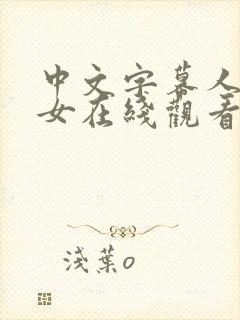 中文字幕人
女在綫觀看
淺葉o